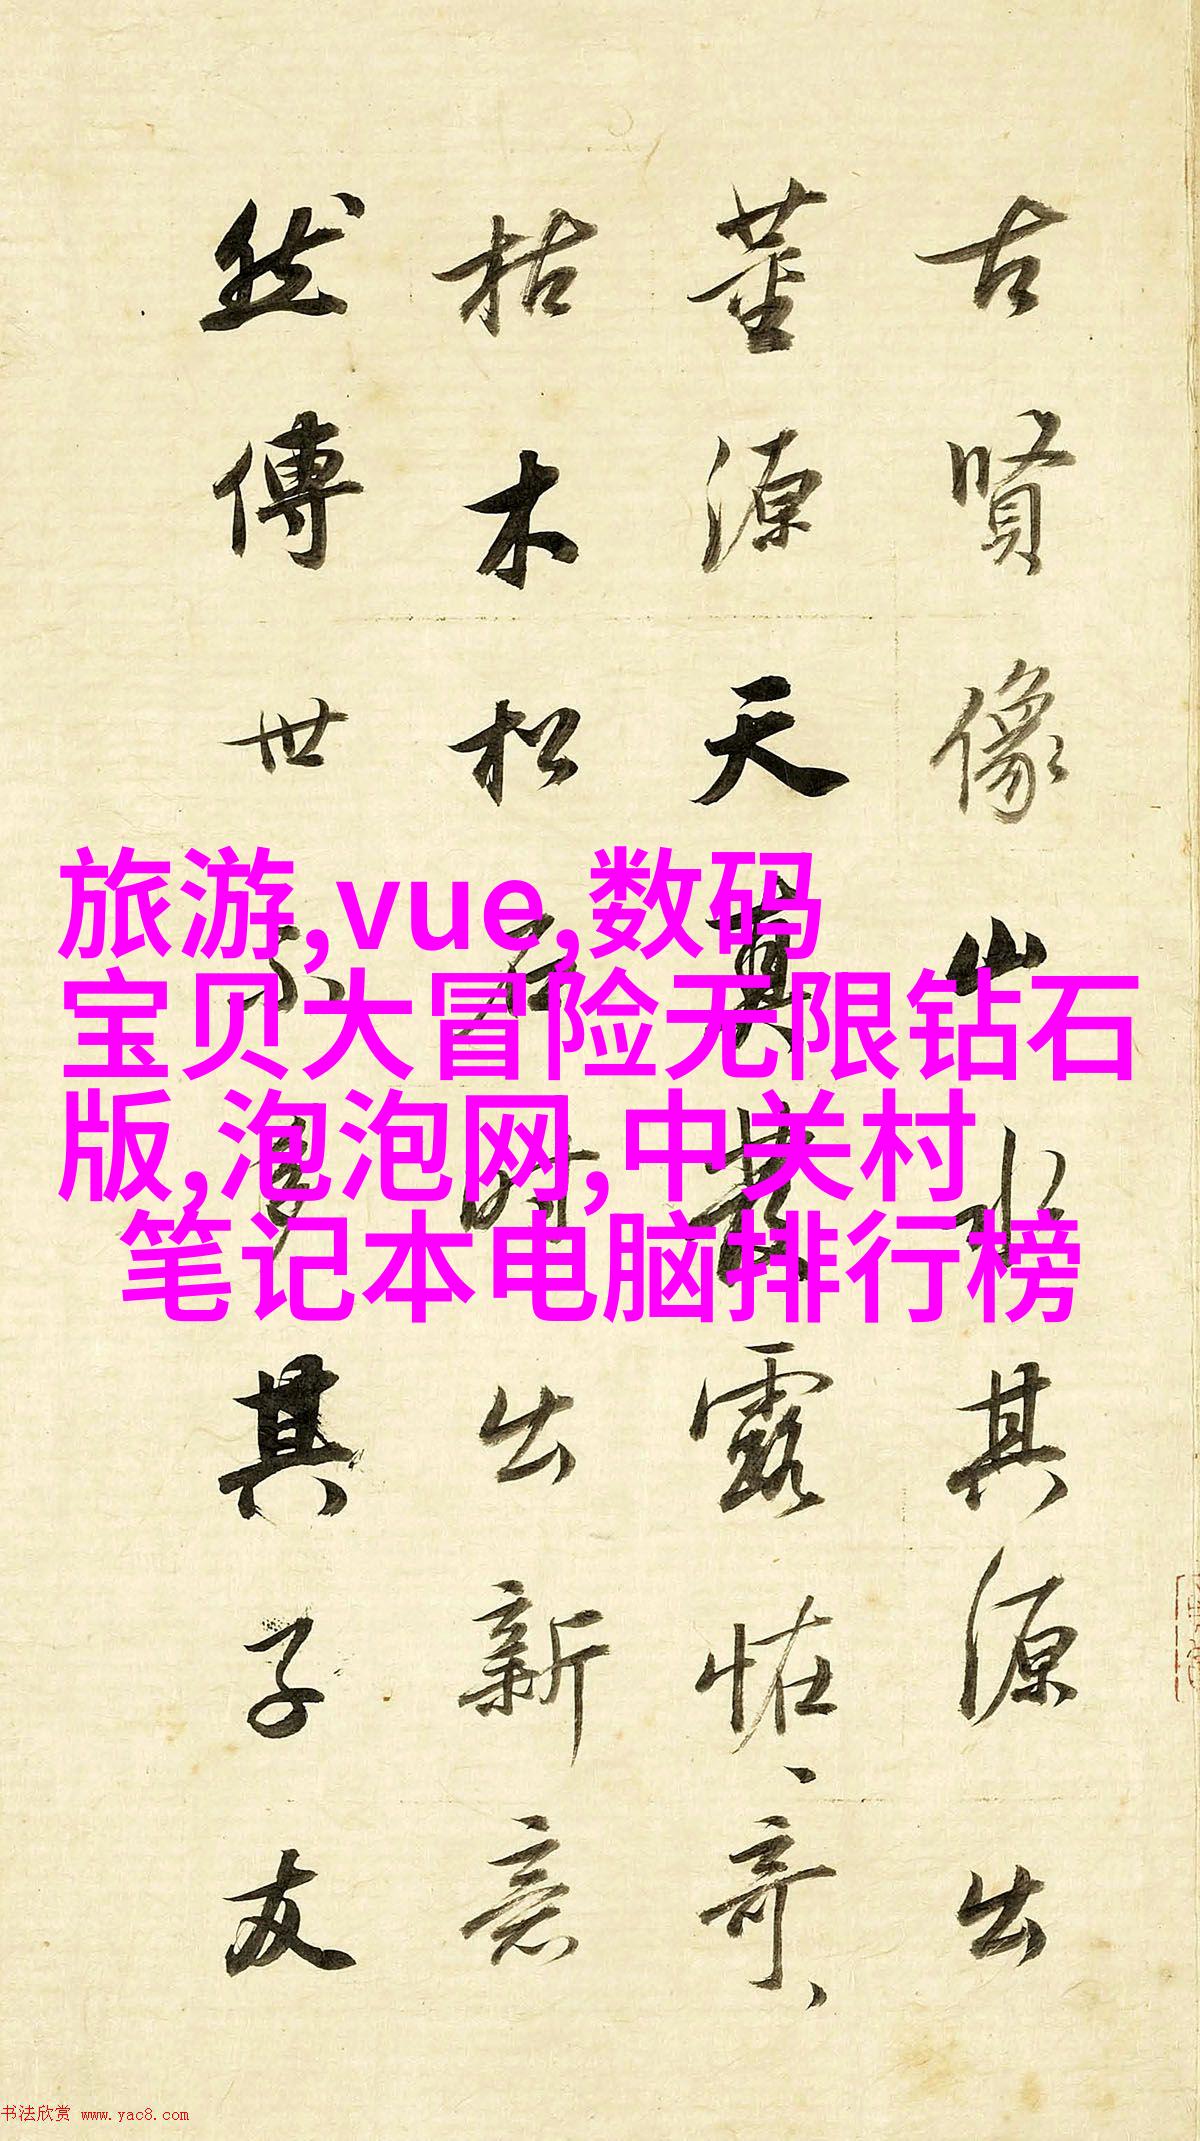 古賢像山水其源出
董源天真發露恠、奇、
枯木松石時出新意
然傳世不多其子友
旅游,vue,数码
宝贝大冒险无限钻石
版,泡泡网,中关村
笔记本电脑排行榜
书法欣赏 www.yac8.com